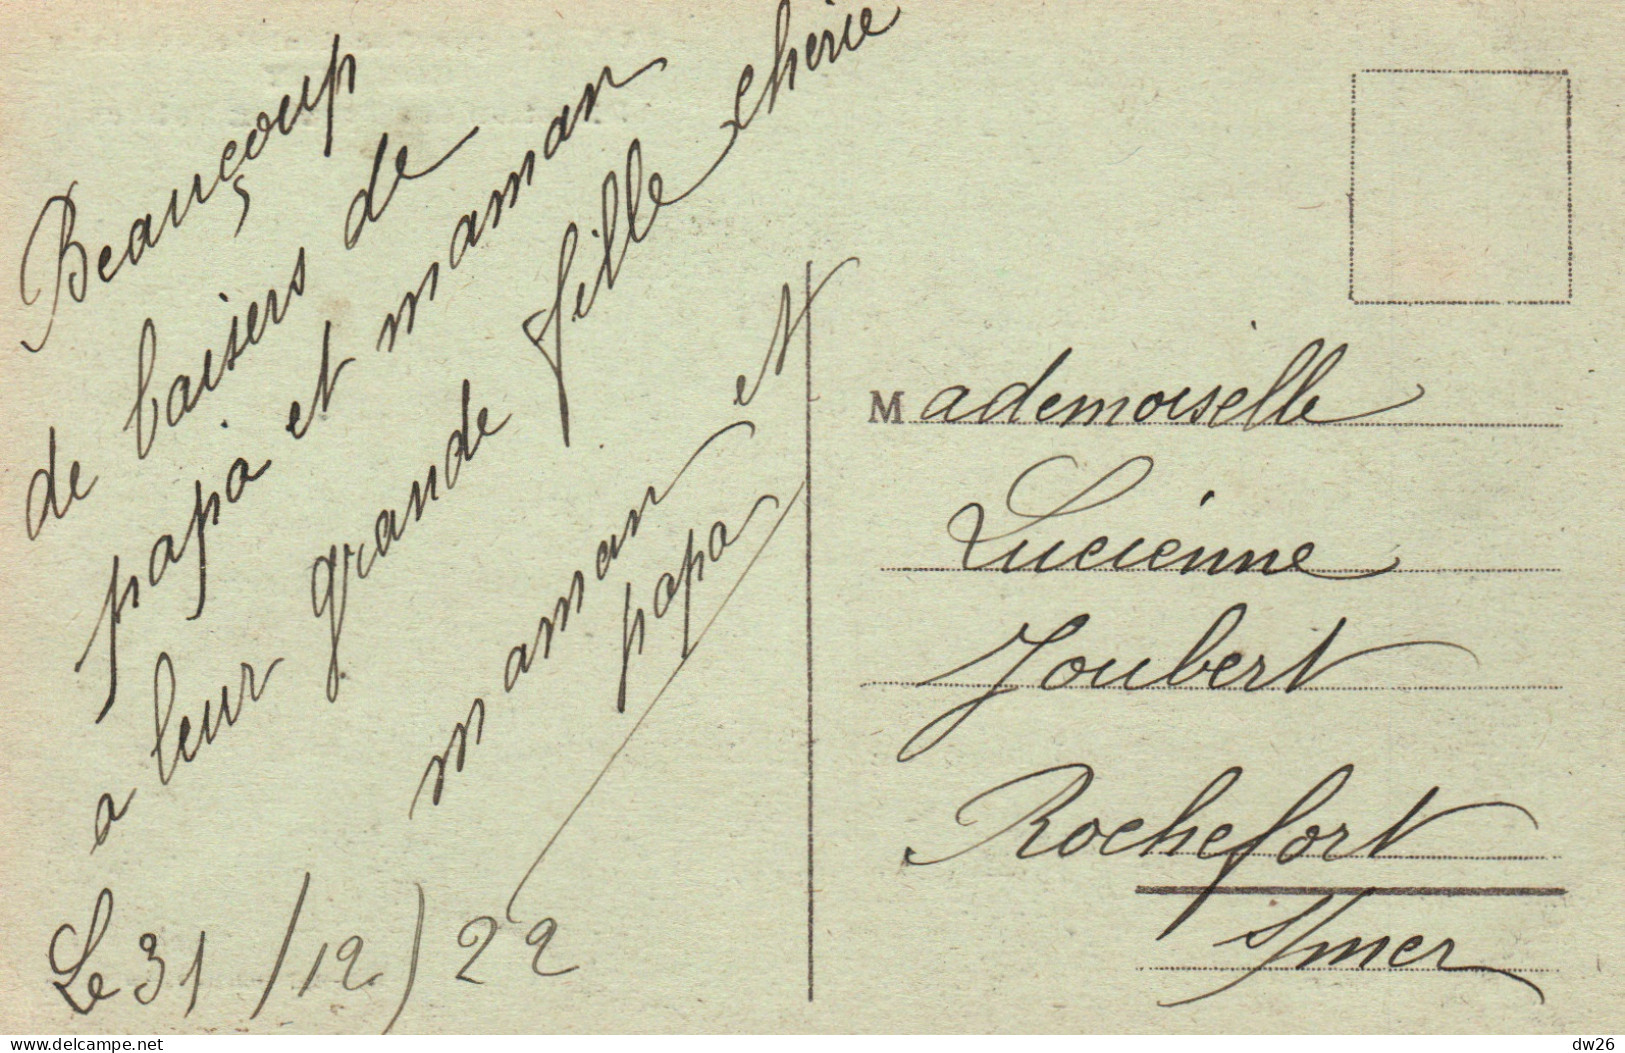 Beauçoup
de baisers de
papa et maman
a leur grande fille chérie
maman et
papa
Le 31/12/22
Mademoiselle
Lucienne
Joubert
Rochefort
s/mer
delcampe.net
dw26